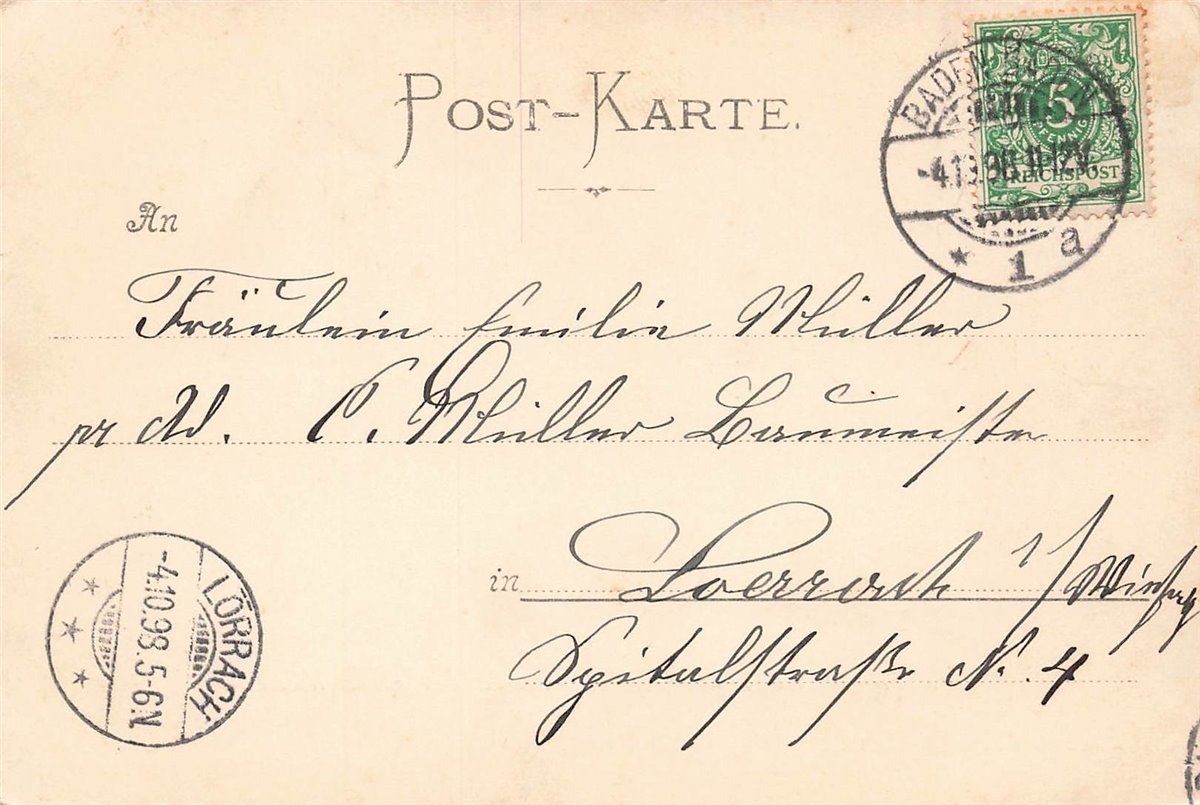 POST-KARTE.
BADEN-BADEN
-4.10.98.11-12V.
* 1 a
5
PFENNIG
REICHSPOST
An
Fräulein Emilie Müller
pr Ad. C. Müller Baumeister
in Loerrach i/
Spitalstraße N. 4
LÖRRACH.
-4.10.98.5-6N.